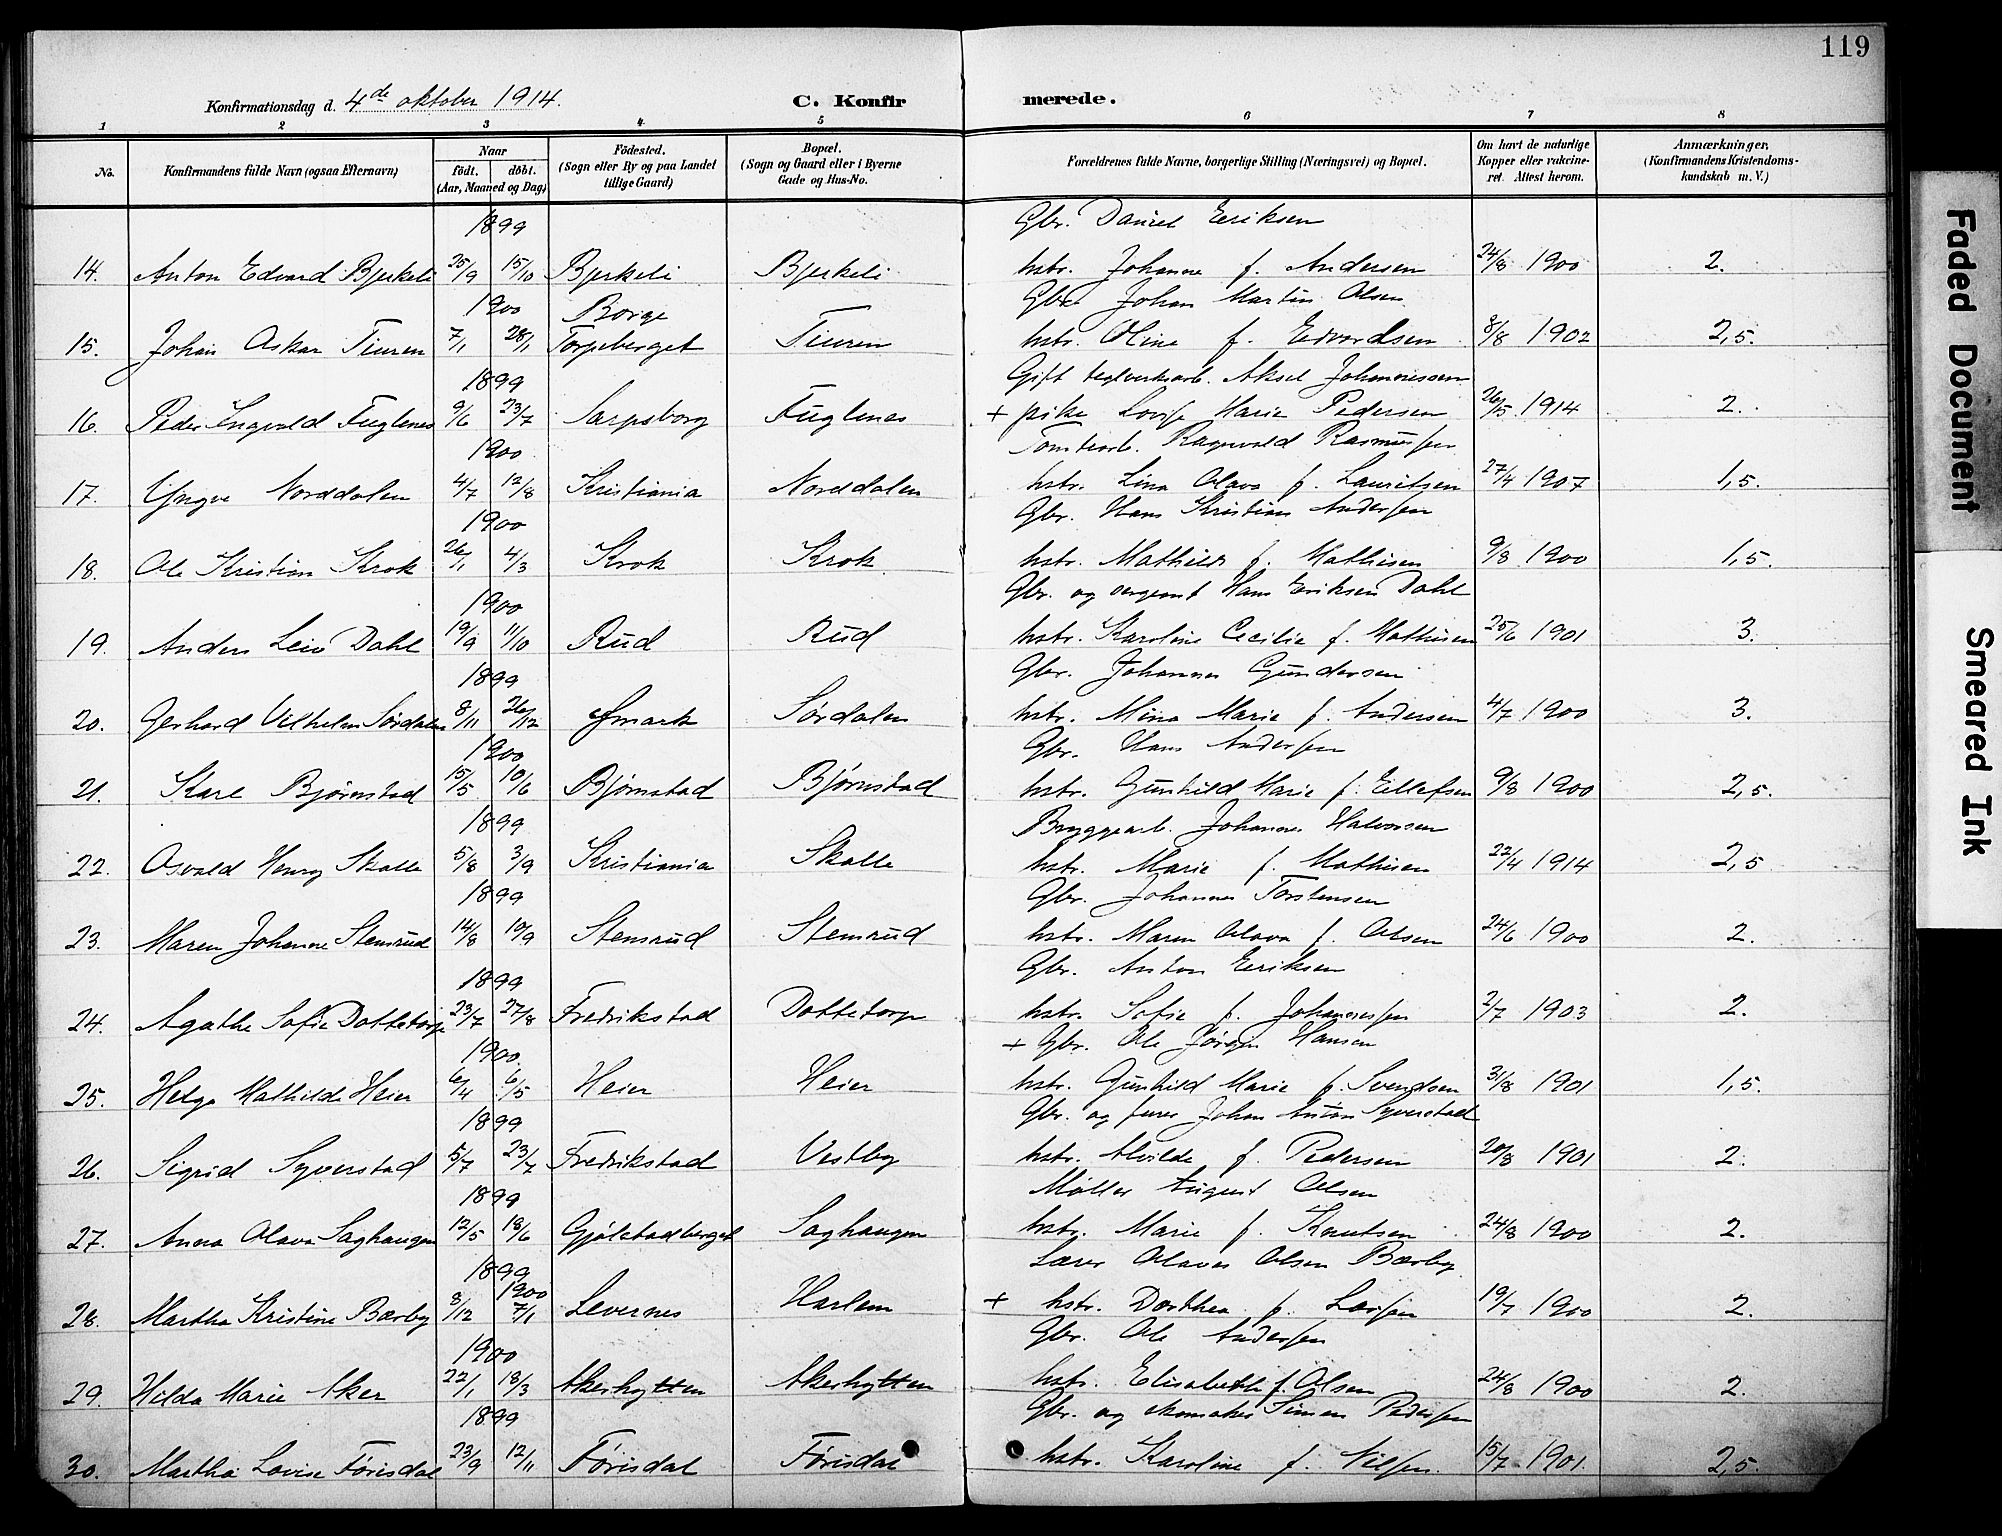 119
Konfirmationsdag d. 4de oktober 1914.
C. Konfirmerede.
1 2 3 4 5 6 7 8
No.
Konfirmandens fulde Navn (ogsaa Efternavn)
Naar
født. døbt.
(Aar, Maaned og Dag)
Fødested.
(Sogn eller By og paa Landet
tillige Gaard)
Bopæl.
(Sogn og Gaard eller i Byerne
Gade og Hus-No.
Forældrenes fulde Navne, borgerlige Stilling (Næringsvei) og Bopæl.
Om havt de naturlige
Kopper eller vakcine-
ret. Attest herom.
Anmærkninger,
(Konfirmandens Kristendoms-
kundskab m. V.)
1899 Gbr. Daniel Eeriksen
14. Anton Edvard Bjerkeli 25/9 15/10 Bjerkeli Bjerkeli hstr. Johanne f. Andersen 24/8 1900 2.
1900 Borge Gbr. Johan Martin Olsen
15. Johan Oskar Tiuren 7/1 28/1 Torpeberget Tiuren hstr. Oline f. Edvardsen 8/8 1902 2,5.
1899 Gift teglverksarb. Aksel Johannessen
16. Peder Ingvald Fuglenes 9/6 23/7 Sarpsborg Fuglenes + pike Lovise Marie Pedersen 26/5 1914 2.
1900 Tomtearb. Ragnvald Rasmussen
17. Yngve Norddalen 4/7 12/8 Kristiania Norddalen hstr. Lina Olava f. Lauritsen 27/4 1907 1,5.
1900 Gbr. Hans Kristian Andersen
18. Ole Kristian Krok 26/1 4/3 Krok Krok hstr. Mathilde f. Mathisen 9/8 1900 1,5.
1900 Gbr. og sergeant Hans Eriksen Dahl
19. Anders Leiv Dahl 19/9 11/10 Rud Rud hstr. Karoline Cecilie f. Mathisen 25/6 1901 3.
1899 Gbr. Johannes Gundersen
20. Gerhard Vilhelm Sørdalen 8/11 26/12 Ømark Sørdalen hstr. Mina Marie f. Andersen 4/7 1900 3.
1900 Gbr. Hans Andersen
21. Karl Bjørnstad 15/5 10/6 Bjørnstad Bjørnstad hstr. Gunhild Marie f. Ellefsen 9/8 1900 2,5.
1899 Bryggearb. Johannes Halvorsen
22. Osvald Henry Skolle 5/8 3/9 Kristiania Skolle hstr. Marie f. Mathisen 22/4 1914 2,5
1899 Gbr. Johannes Torstensen
23. Maren Johanne Stensrud 14/8 10/9 Stensrud Stensrud hstr. Maren Olava f. Olsen 24/6 1900 2.
1899 Gbr. Anton Eeriksen
24. Agathe Sofie Dottetorp 23/7 27/8 Fredrikstad Dottetorp hstr. Sofie f. Johannessen 2/7 1903 2.
1900 + Gbr. Ole Jørgen Hansen
25. Helga Mathilde Heier 6/4 6/5 Heier Heier hstr. Gunhild Marie f. Svendsen 31/8 1901 1,5.
1899 Gbr. og furer Johan Anton Syverstad
26. Sigrid Syverstad 5/7 23/7 Fredrikstad Vestby hstr. Alvilde f. Pedersen 20/8 1901 2.
1899 Møller August Olsen
27. Anna Olava Saghaugen 12/5 18/6 Gjølstadberget Saghaugen hstr. Marie f. Knutsen 24/8 1900 2.
1899 1900 Lærer Olaves Olsen Bærby
28. Martha Kristine Bærby 8/12 7/1 Levernes Harlem + hstr. Dorthea f. Larsen 19/7 1900 2.
1900 Gbr. Ole Andersen
29. Hilda Marie Aker 22/1 18/3 Akerhytten Akerhytten hstr. Elisabeth f. Olsen 24/8 1900 2.
1899 Gbr. og skomaker Simen Pedersen
30. Martha Lovise Førisdal 23/9 12/11 Førisdal Førisdal hstr. Karoline f. Nilsen. 15/7 1901 2,5.
Faded Document
Smeared Ink